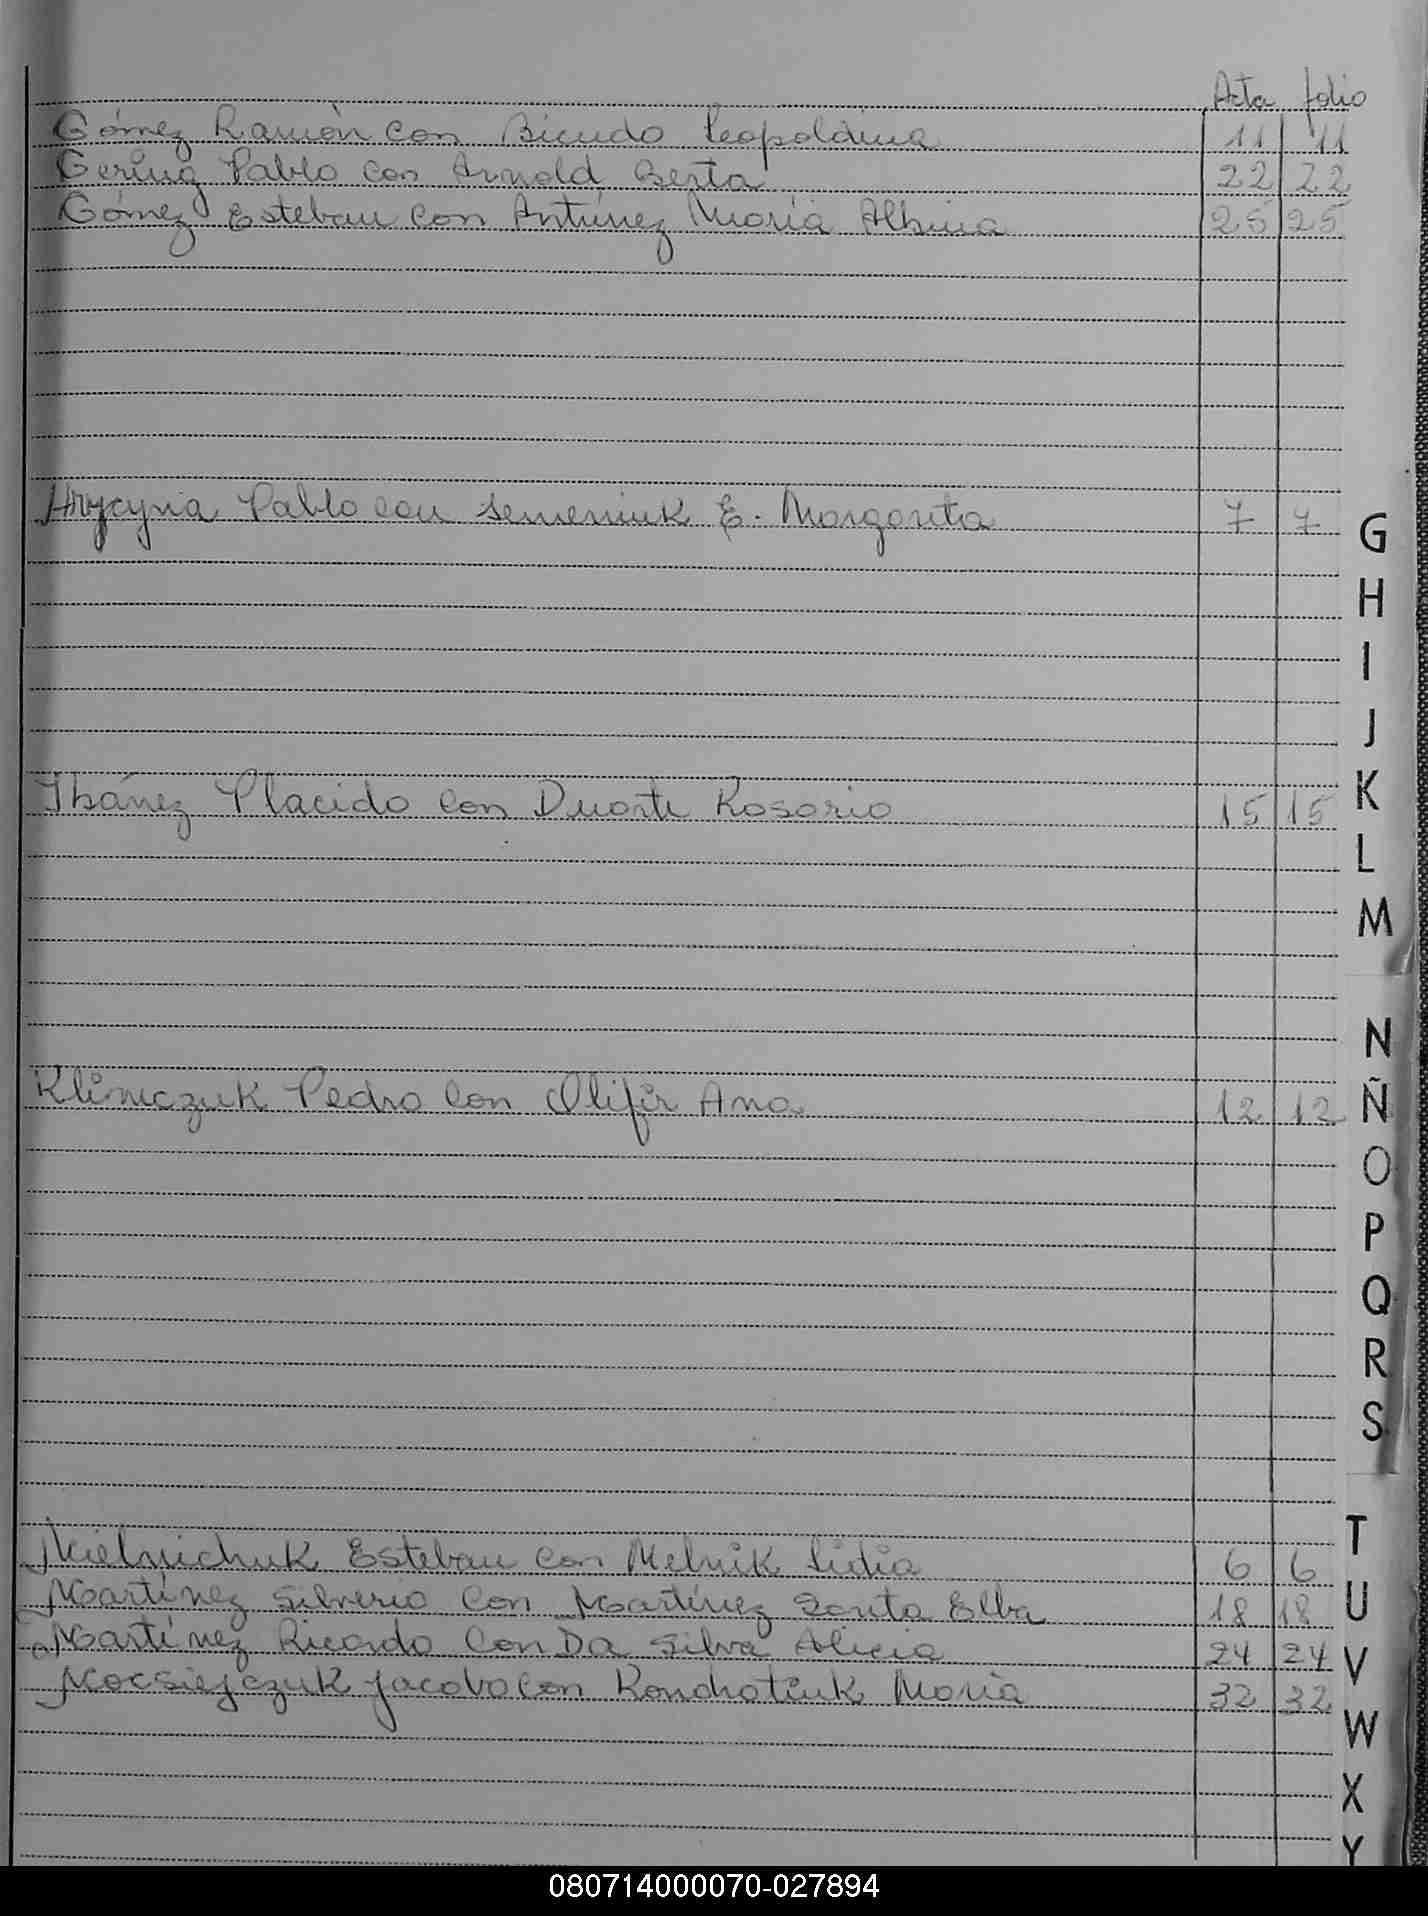 Acta folio
Gómez Ramón con Bicudo Leopoldina 11 11
Gering Pablo con Arnold Berta 22 22
Gómez Esteban con Antúnez María Albina 25 25
Hrycyna Pablo con Semeniuk E. Margarita 7 7
Ibánez Placido con Duarte Rosario 15 15
Klimczuk Pedro con Olifir Ana 12 12
Mielnichuk Esteban con Melnik Lidia 6 6
Martínez Silverio con Martínez Santa Elba 18 18
Martínez Ricardo con Da Silva Alicia 24 24
Mocsiejczuk Jacobo con Kondratiuk María 32 32
G
H
I
J
K
L
M
N
Ñ
O
P
Q
R
S
T
U
V
W
X
Y
080714000070-027894